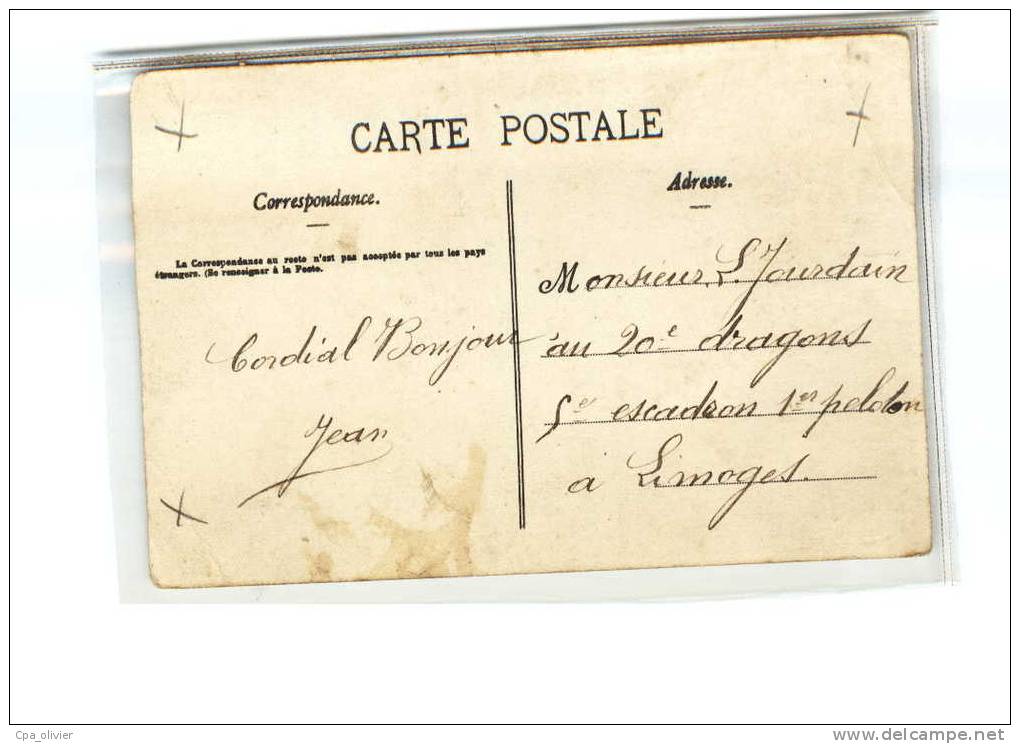 CARTE POSTALE
Correspondance.
La Correspondance au recto n'est pas acceptée par tous les pays
étrangers. (Se renseigner à la Poste.
Cordial Bonjour
Jean
Adresse.
Monsieur L. Jourdain
au 20e dragons
5e escadron 1er peloton
à Limoges.
Cpa_olivier
www.delcampe.net